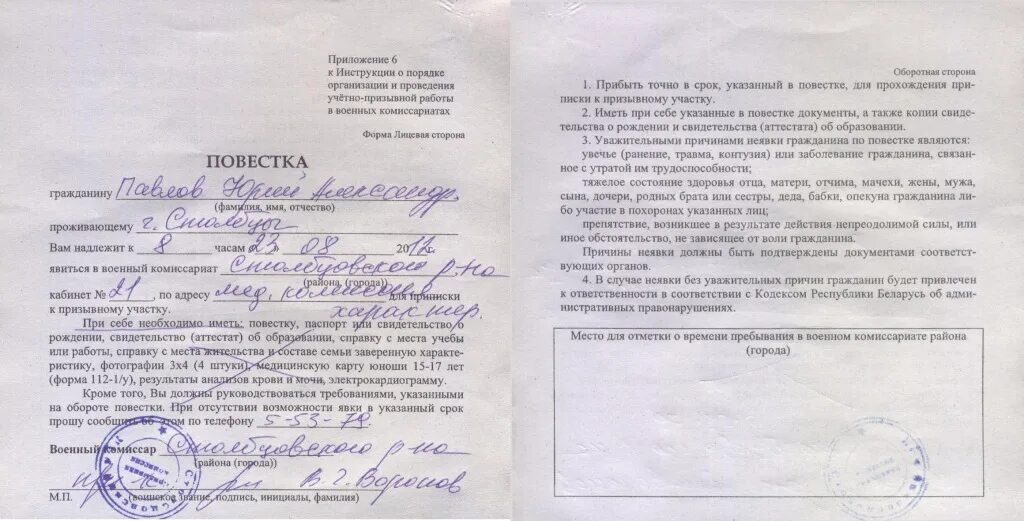 Приложение 6
к Инструкции о порядке
организации и проведения
учётно-призывной работы
в военных комиссариатах
Форма Лицевая сторона
ПОВЕСТКА
гражданину Павлов Юрий Александр.
(фамилия, имя, отчество)
проживающему г. Столбцы
Вам надлежит к 8 часам 23 08 2012 г.
явиться в военный комиссариат Столбцовского р-на
(района, (города))
кабинет № 21, по адресу мед. комиссия для приписки
к призывному участку. характер.
При себе необходимо иметь: повестку, паспорт или свидетельство о
рождении, свидетельство (аттестат) об образовании, справку с места учебы
или работы, справку с места жительства и составе семьи заверенную характе-
ристику, фотографии 3х4 (4 штуки), медицинскую карту юноши 15-17 лет
(форма 112-1/у), результаты анализов крови и мочи, электрокардиограмму.
Кроме того, Вы должны руководствоваться требованиями, указанными
на обороте повестки. При отсутствии возможности явки в указанный срок
прошу сообщить об этом по телефону 5-53-79.
Военный комиссар Столбцовского р-на
(района (города))
В.Г. Воронов
М.П. (воинское звание, подпись, инициалы, фамилия)
Оборотная сторона
1. Прибыть точно в срок, указанный в повестке, для прохождения при-
писки к призывному участку.
2. Иметь при себе указанные в повестке документы, а также копии свиде-
тельства о рождении и свидетельства (аттестата) об образовании.
3. Уважительными причинами неявки гражданина по повестке являются:
увечье (ранение, травма, контузия) или заболевание гражданина, связан-
ное с утратой им трудоспособности;
тяжелое состояние здоровья отца, матери, отчима, мачехи, жены, мужа,
сына, дочери, родных брата или сестры, деда, бабки, опекуна гражданина ли-
бо участие в похоронах указанных лиц;
препятствие, возникшее в результате действия непреодолимой силы, или
иное обстоятельство, не зависящее от воли гражданина.
Причины неявки должны быть подтверждены документами соответст-
вующих органов.
4. В случае неявки без уважительных причин гражданин будет привлечен
к ответственности в соответствии с Кодексом Республики Беларусь об ад-
министративных правонарушениях.
Место для отметки о времени пребывания в военном комиссариате района
(города)